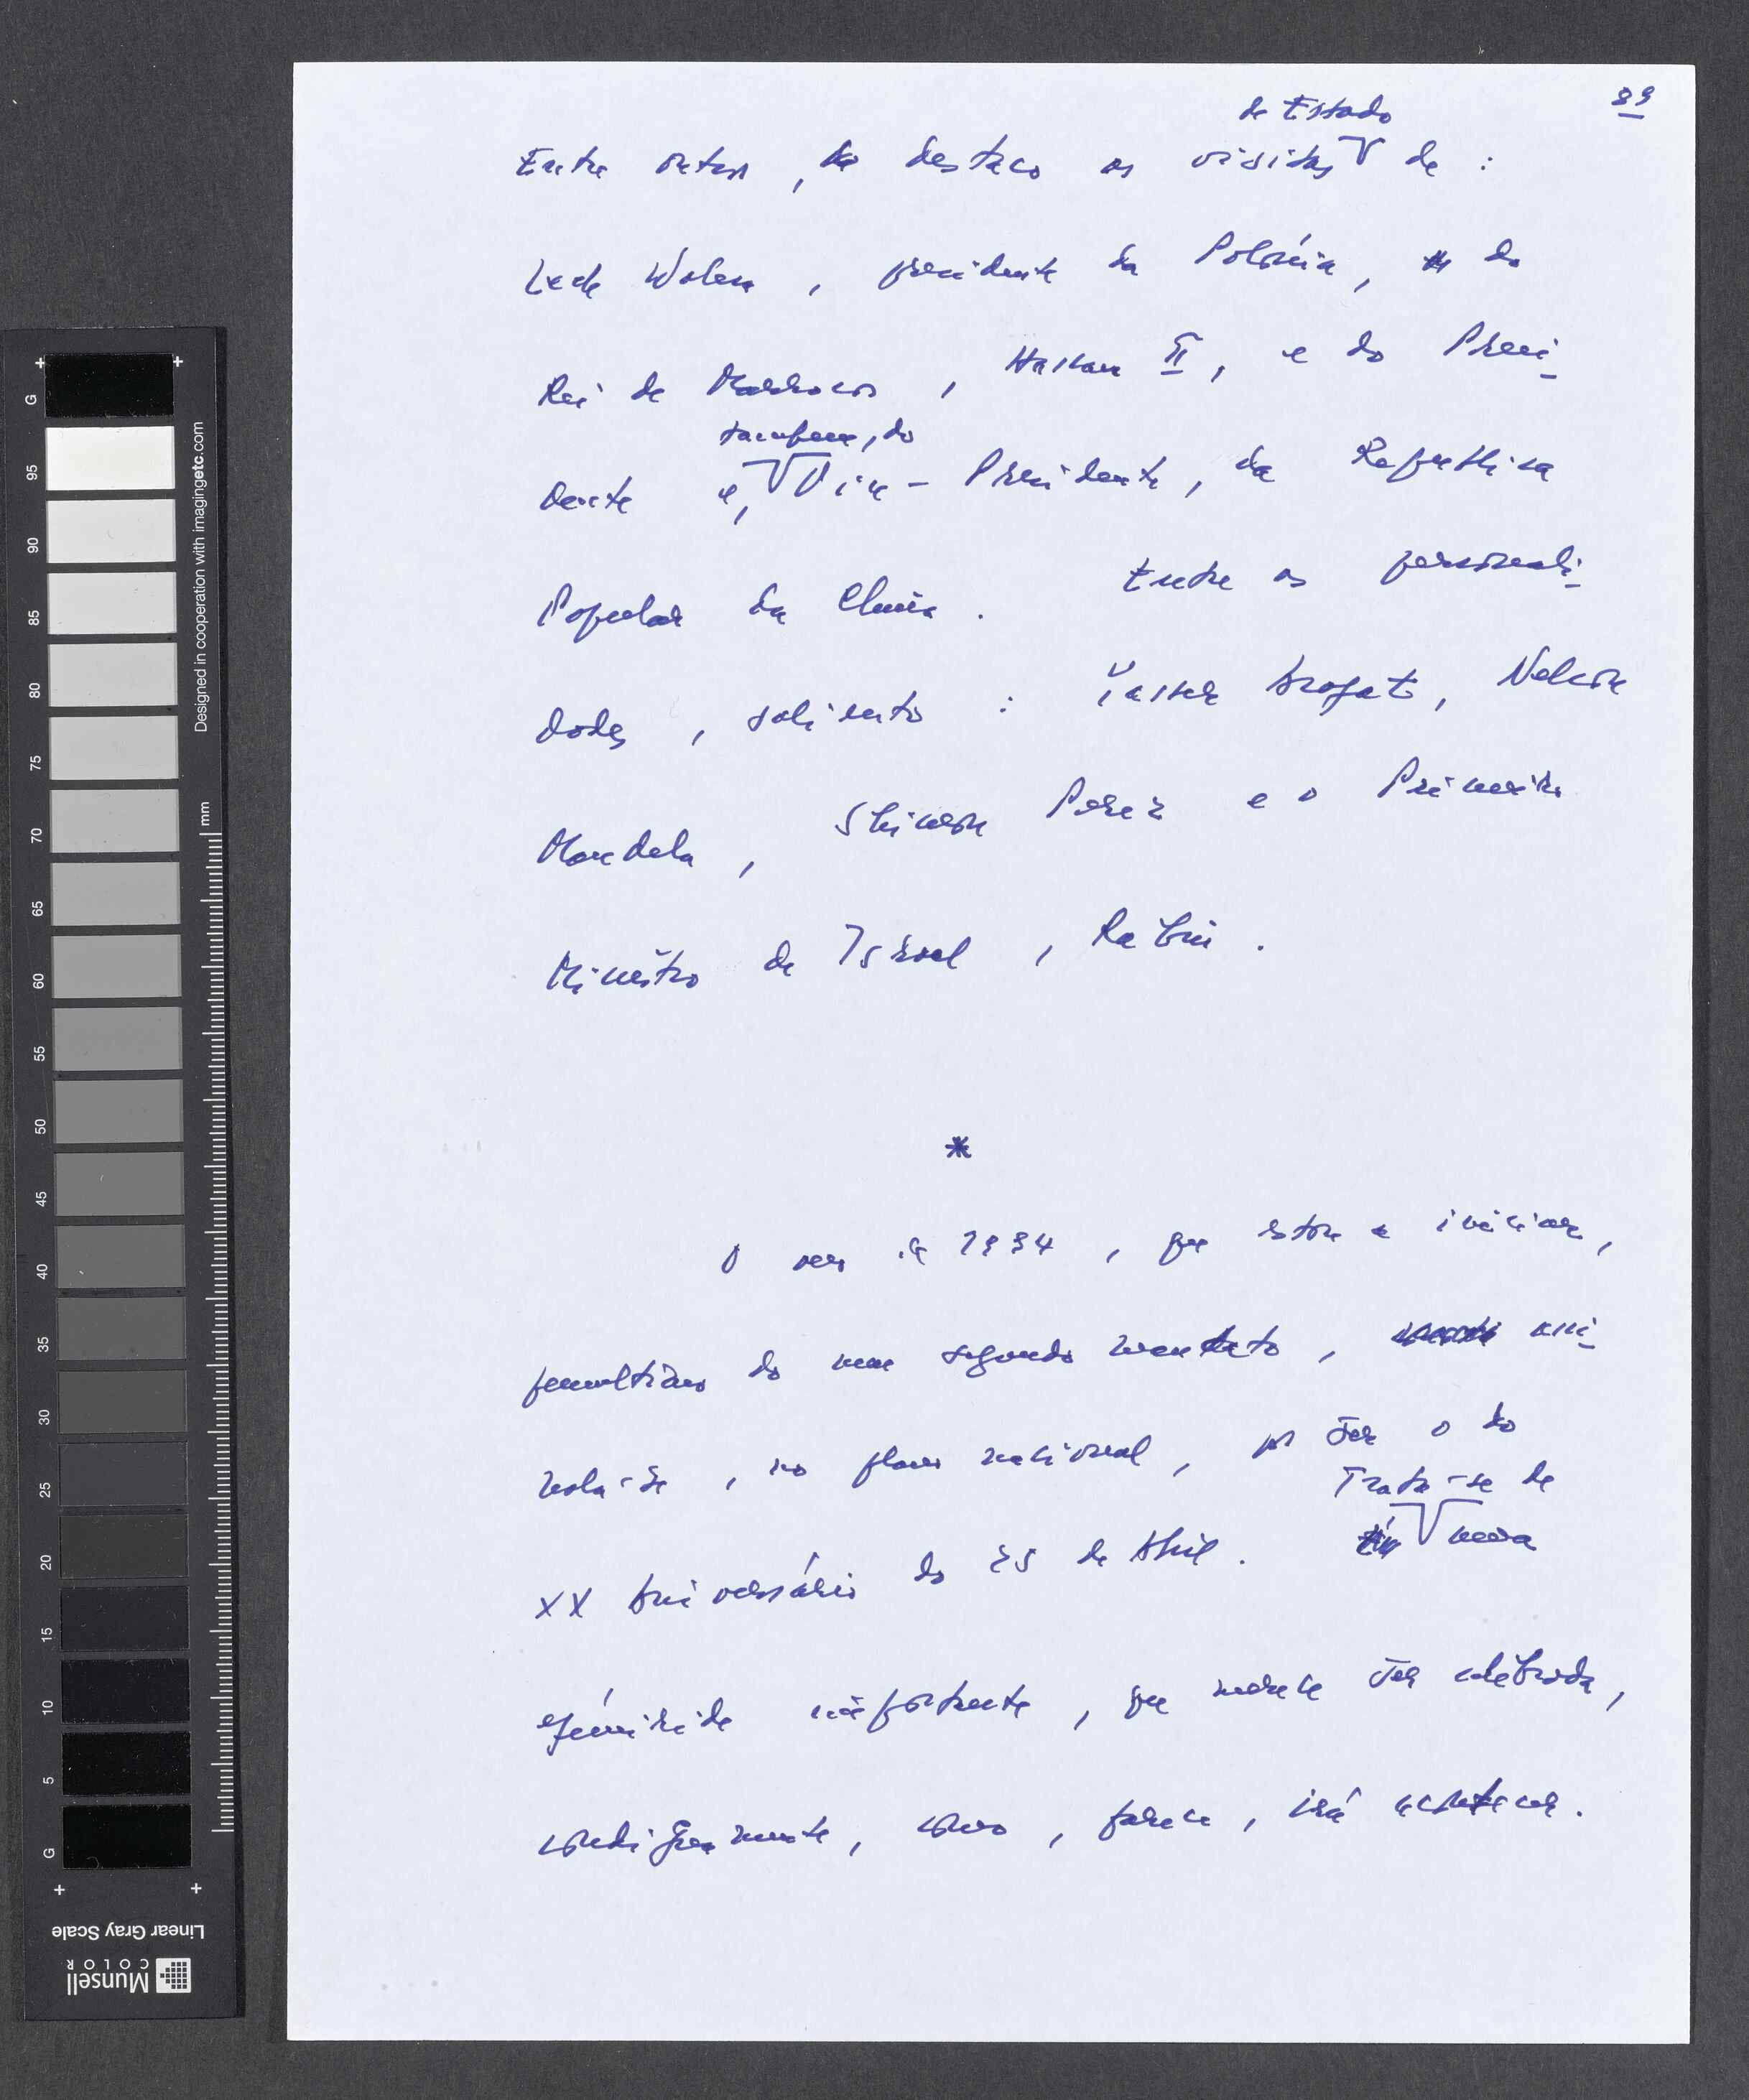 89
de Estado
Entre outras, destaco as visitas de :
Lech Walesa, presidente da Polónia, do
Rei de Marrocos, Hassan II, e do Presi-
também, do
dente e, Vice-Presidente, da República
Popular da China. Entre as personali-
dades, saliento : Yasser Arafat, Nelson
Mandela, Shimon Perez e o Primeiro
Ministro de Israel, Rabin.
*
O ano de 1994, que estou a iniciar,
penúltimo do meu segundo mandato, assi-
nala-se, no plano nacional, por ser o do
Trata-se de
XX Aniversário do 25 de Abril. uma
efeméride importante, que merece ser celebrada,
condignamente, como, parece, irá acontecer.
G
95
90
85
80
75
70
65
60
55
50
45
40
35
30
25
20
15
10
5
G
mm
Designed in cooperation with imagingetc.com
Linear Gray Scale
Munsell
COLOR